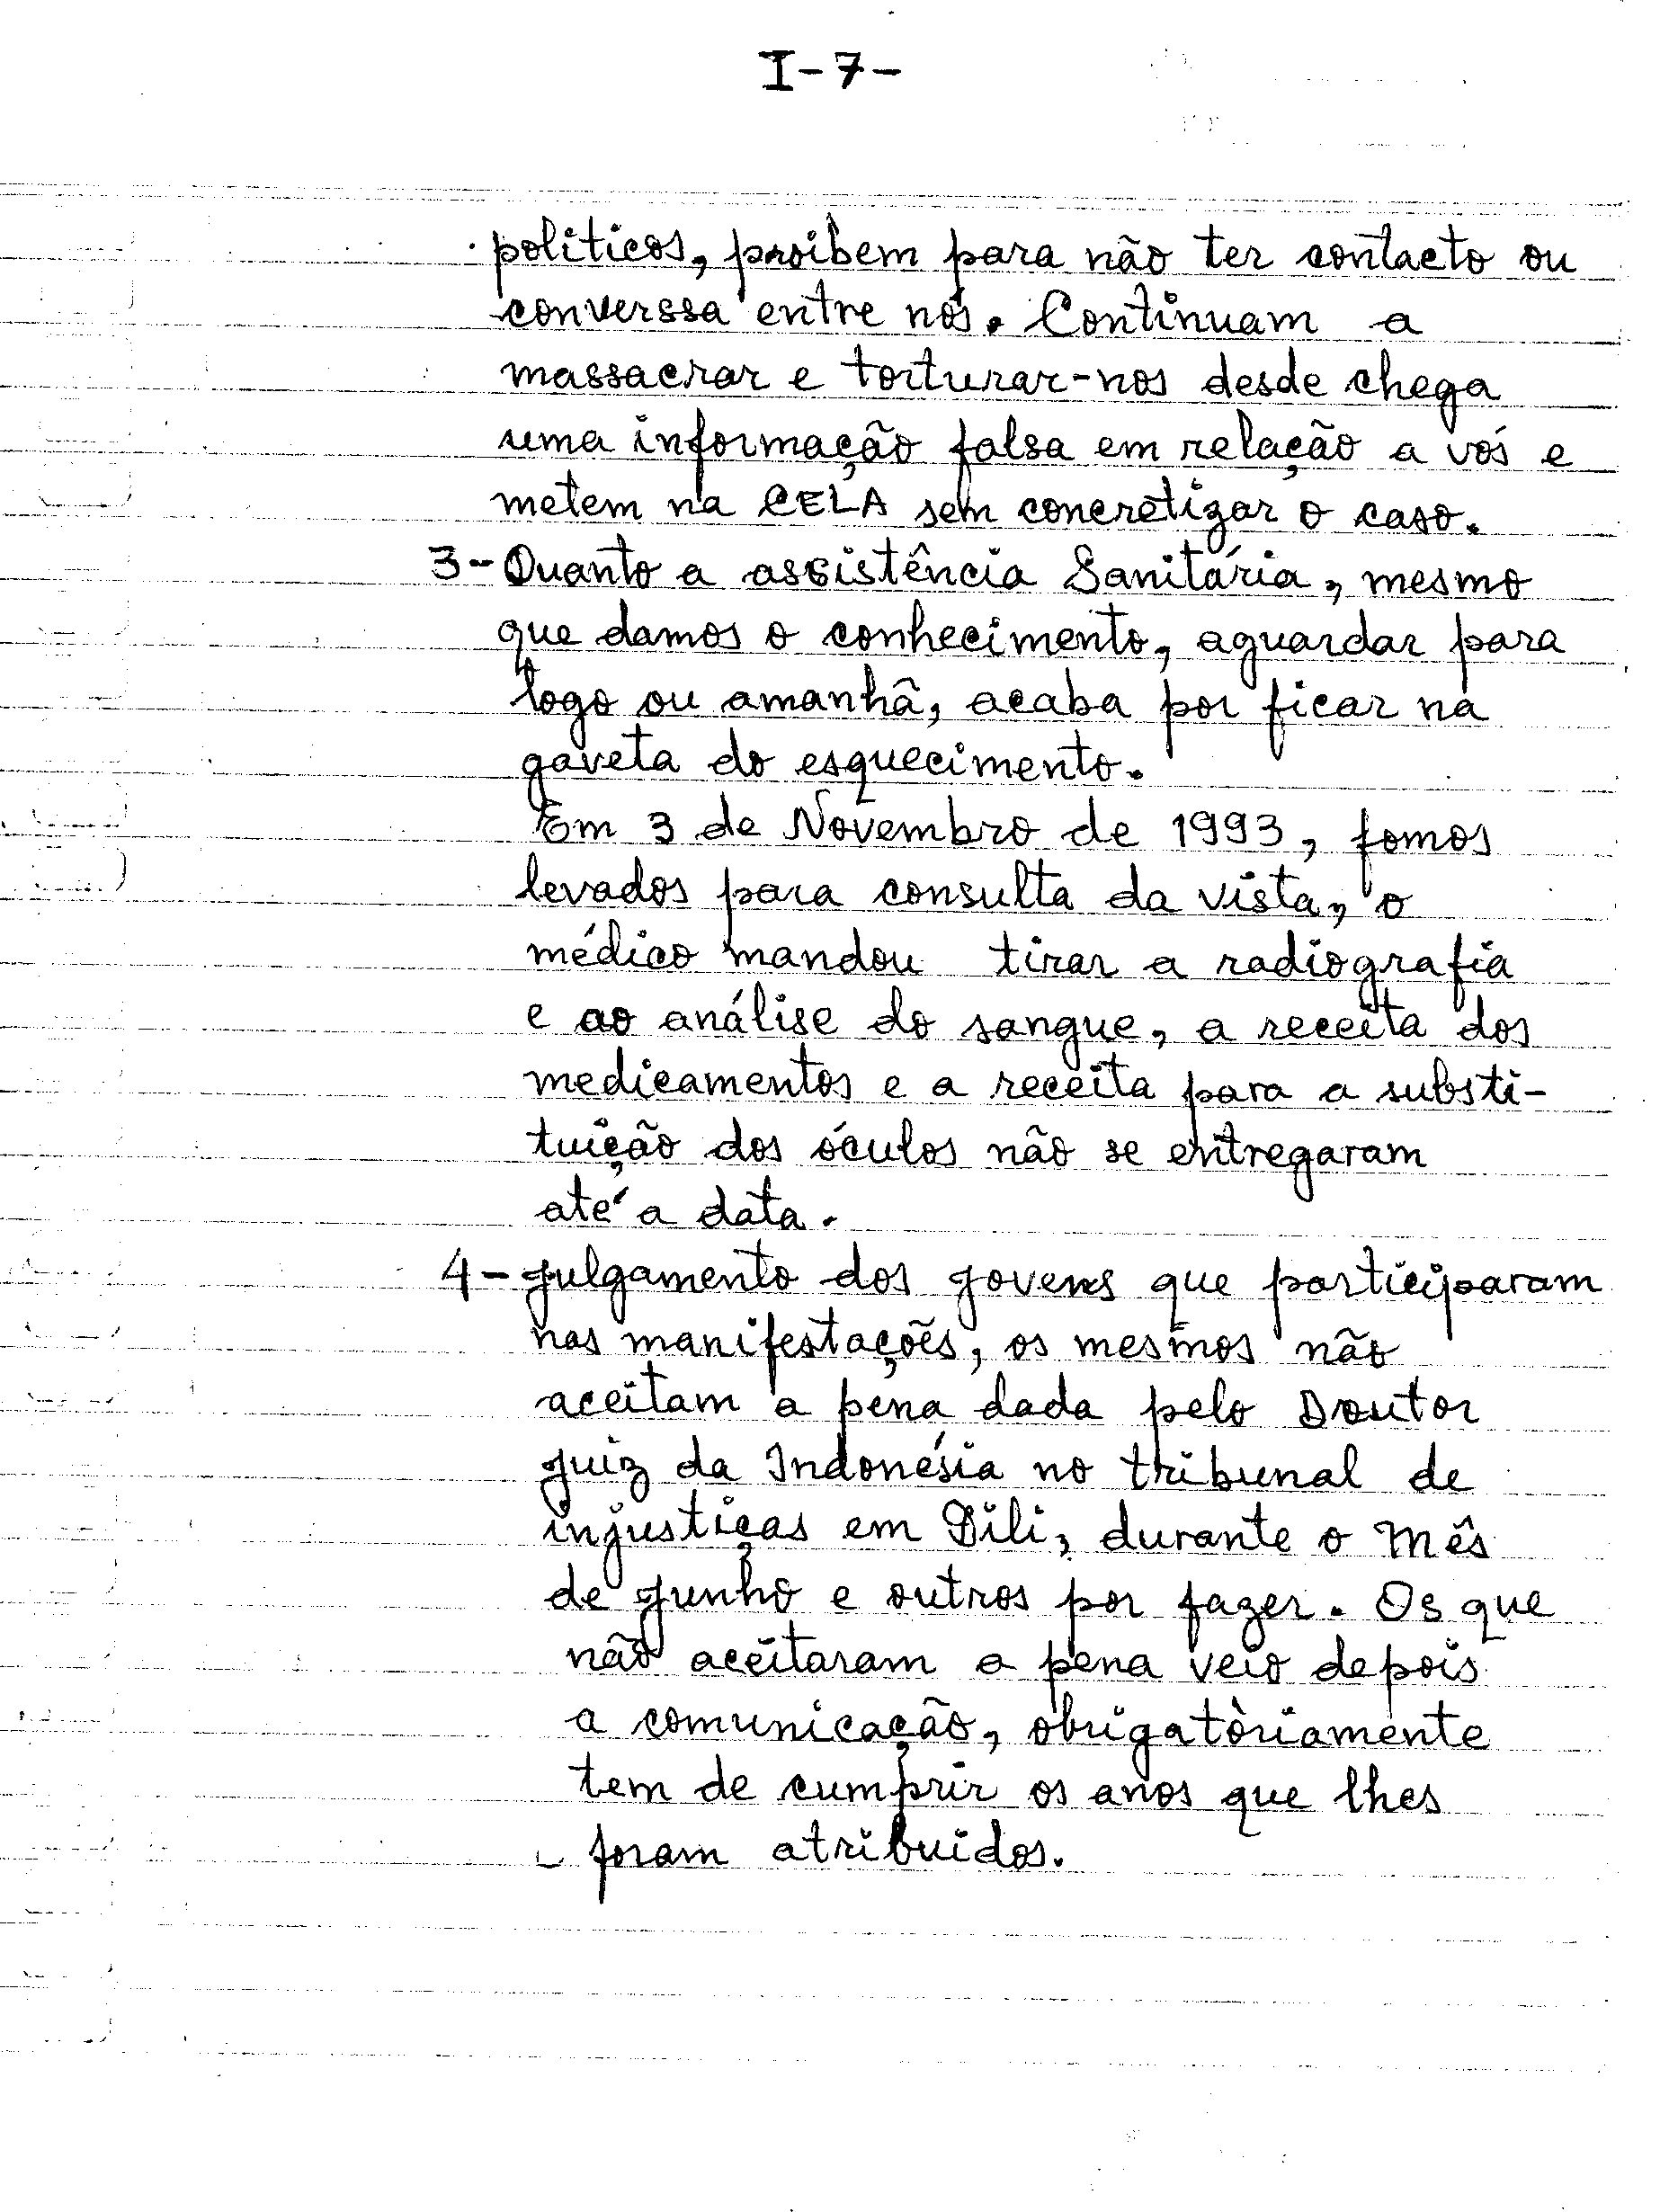 I-7-
politicos, proibem para não ter contacto ou
converssa entre nós. Continuam a
massacrar e torturar-nos desde chega
uma informação falsa em relação a vós e
metem na CELA sem concretizar o caso.
3-Quanto a assistência Sanitária, mesmo
que damos o conhecimento, aguardar para
logo ou amanhã, acaba por ficar na
gaveta do esquecimento.
Em 3 de Novembro de 1993, fomos
levados para consulta da vista, o
médico mandou tirar a radiografia
e ao análise do sangue, a receita dos
medicamentos e a receita para a substi-
tuição dos óculos não se entregaram
até a data.
4-Julgamento dos jovens que participaram
nas manifestações, os mesmos não
aceitam a pena dada pelo Doutor
Juiz da Indonésia no tribunal de
injustiças em Dili, durante o Mês
de Junho e outros por fazer. Os que
não aceitaram a pena veio depois
a comunicação, obrigatòriamente
tem de cumprir os anos que lhes
foram atribuidos.